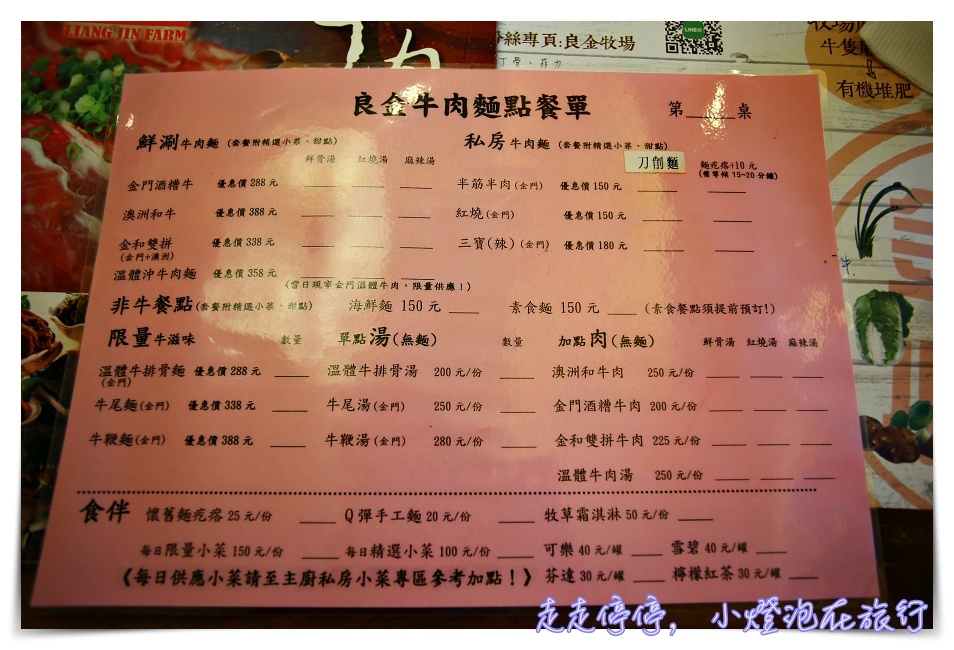 LIANG JIN FARM
絲專頁:良金牧場
LINE@
丁骨、菲力
牛隻
有機堆肥
良金牛肉麵點餐單 第____桌
鮮涮牛肉麵 (套餐附精選小菜、甜點)
鮮骨湯 紅燒湯 麻辣湯
金門酒糟牛 優惠價 288 元 ____ ____ ____
澳洲和牛 優惠價 388 元 ____ ____ ____
金和雙拼 優惠價 338 元 ____ ____ ____
(金門+澳洲)
溫體沖牛肉麵 優惠價 358 元 ____ ____ ____
(當日現宰金門溫體牛肉,限量供應!)
私房牛肉麵 (套餐附精選小菜、甜點)
刀削麵 麵疙瘩+10元
(需等候 15~20 分鐘)
半筋半肉(金門) 優惠價 150 元 ____ ____
紅燒(金門) 優惠價 150 元 ____ ____
三寶(辣)(金門) 優惠價 180 元 ____ ____
非牛餐點(套餐附精選小菜、甜點) 海鮮麵 150 元 ____ 素食麵 150 元 ____ (素食餐點須提前預訂!)
限量牛滋味 數量
溫體牛排骨麵 優惠價 288 元 ____
(金門)
牛尾麵(金門) 優惠價 338 元 ____
牛鞭麵(金門) 優惠價 388 元 ____
單點湯(無麵) 數量
溫體牛排骨湯 200 元/份 ____
牛尾湯(金門) 250 元/份 ____
牛鞭湯(金門) 280 元/份 ____
加點肉(無麵) 鮮骨湯 紅燒湯 麻辣湯
澳洲和牛肉 250 元/份 ____ ____ ____
金門酒糟牛肉 200 元/份 ____ ____ ____
金和雙拼牛肉 225 元/份 ____ ____ ____
溫體牛肉湯 250 元/份 ____ ____ ____
食伴 懷舊麵疙瘩 25 元/份 ____ Q彈手工麵 20 元/份 ____ 牧草霜淇淋 50 元/份 ____
每日限量小菜 150 元/份 ____ 每日精選小菜 100 元/份 ____ 可樂 40 元/罐 ____ 雪碧 40 元/罐 ____
《每日供應小菜請至主廚私房小菜專區參考加點!》 芬達 30 元/罐 ____ 檸檬紅茶 30 元/罐 ____
牛.
走走停停,小燈泡在旅行